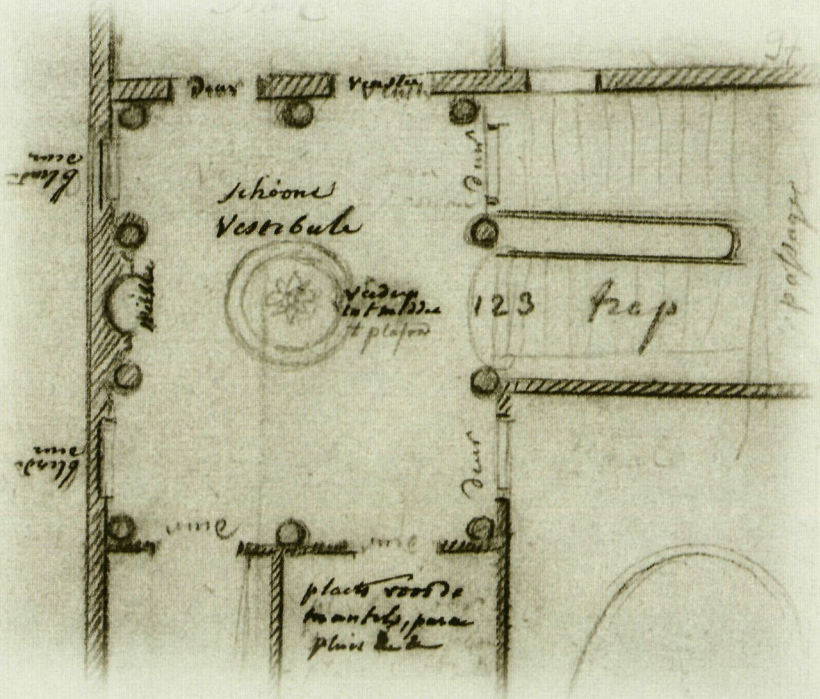 deur
venster
blinde
deur
deur
Schoone
Vestibule
niche
in't midde
't plafon
1 2 3
trap
passage
blinde
deur
deur
deur
deur
plaets voor de
mantels, para
pluis &c &c